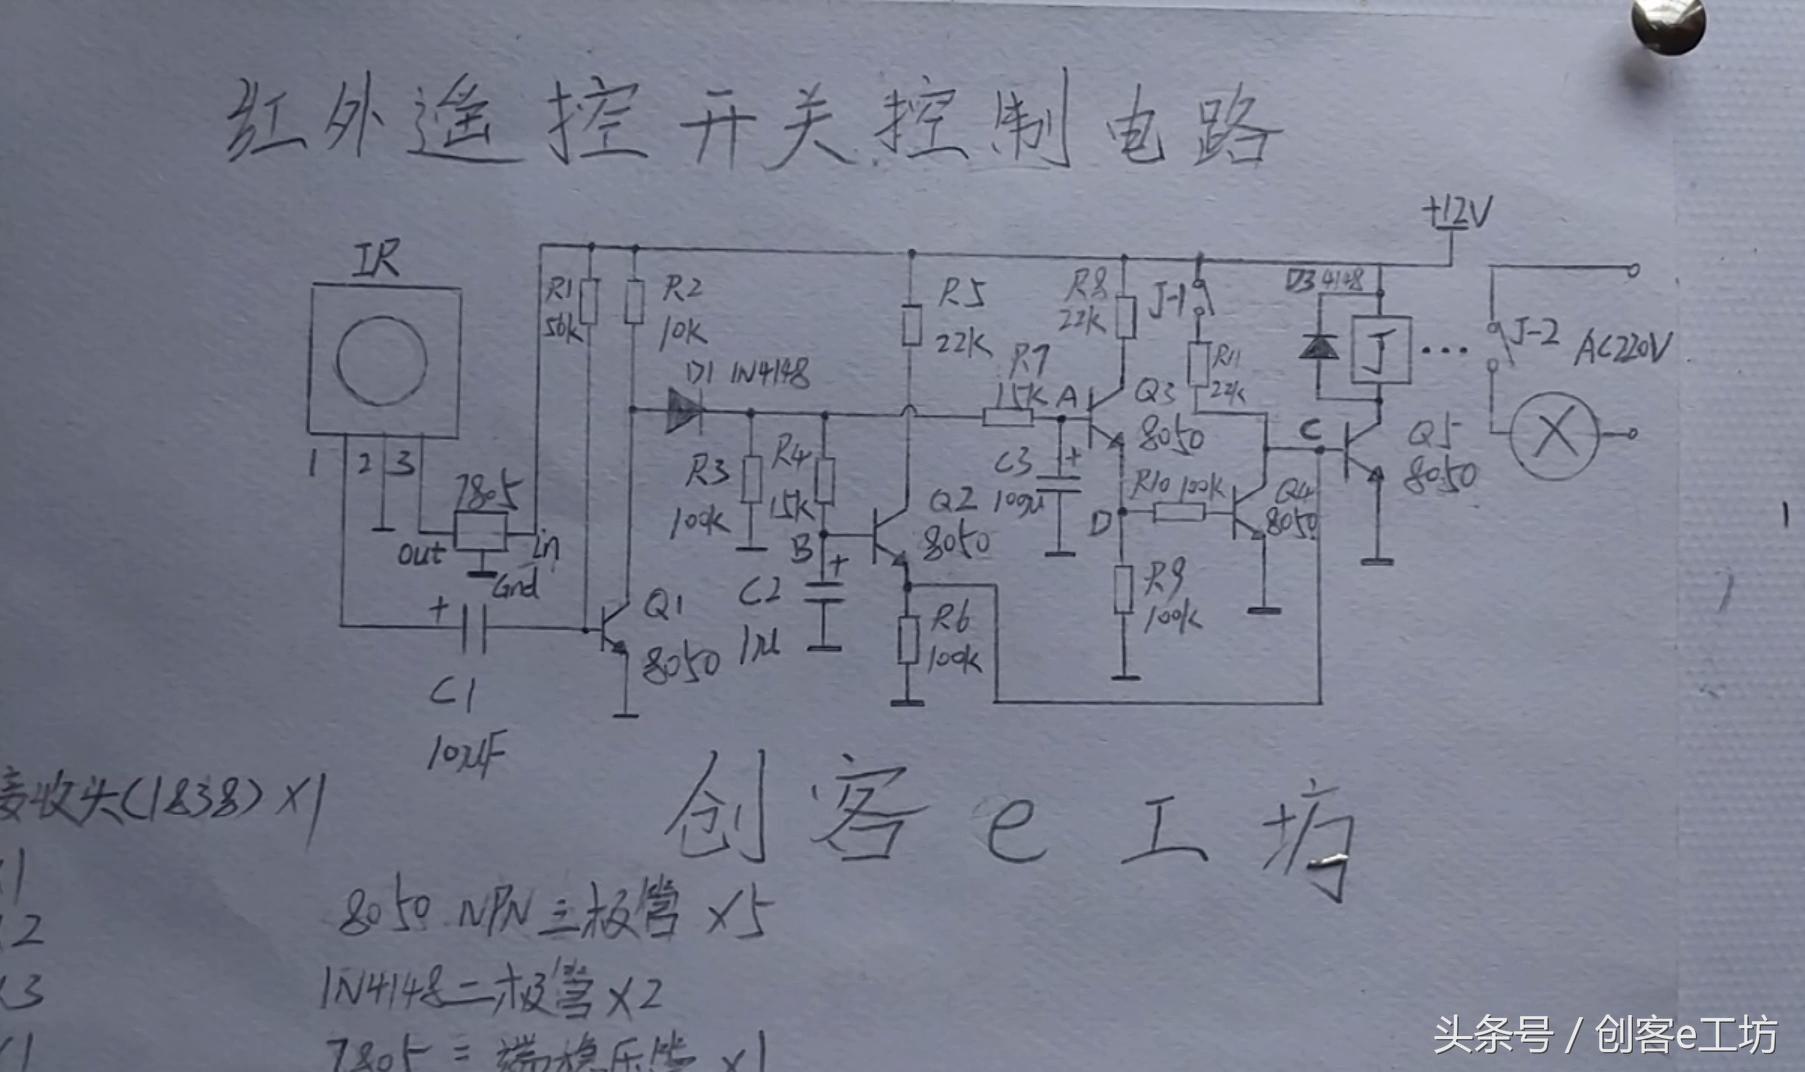 红外遥控开关控制电路
+12V
IR
R1
56k
R2
10k
R5
22k
R8
22k
J-1
D3 4148
J
J-2
AC220V
D1 1N4148
R7
15k
A
Q3
8050
R11
22k
C
Q5
8050
1 2 3
7805
out
in
Gnd
R3
100k
R4
15k
B
Q2
8050
C3
+
100μ
R10 100k
D
Q4
8050
+
C1
10μF
Q1
8050
C2
+
1μ
R6
100k
R9
100k
创客e工坊
接收头(1838)×1
×1
×2
×3
×1
8050 NPN三极管×5
1N4148二极管×2
7805三端稳压管×1
头条号 / 创客e工坊